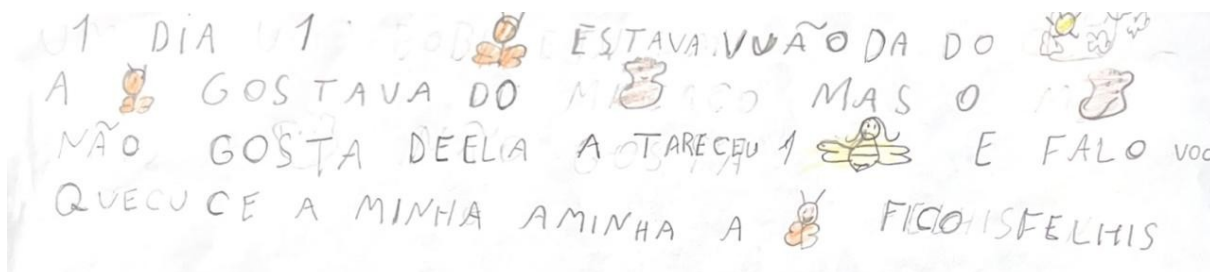 1 DIA 1 ESTAVA VUÃO DA DO
A GOSTAVA DO MAS O
NÃO GOSTA DEELA A TARECEU 1 E FALO VOC
QUECUCE A MINHA AMINHA A FICO ISFELHIS